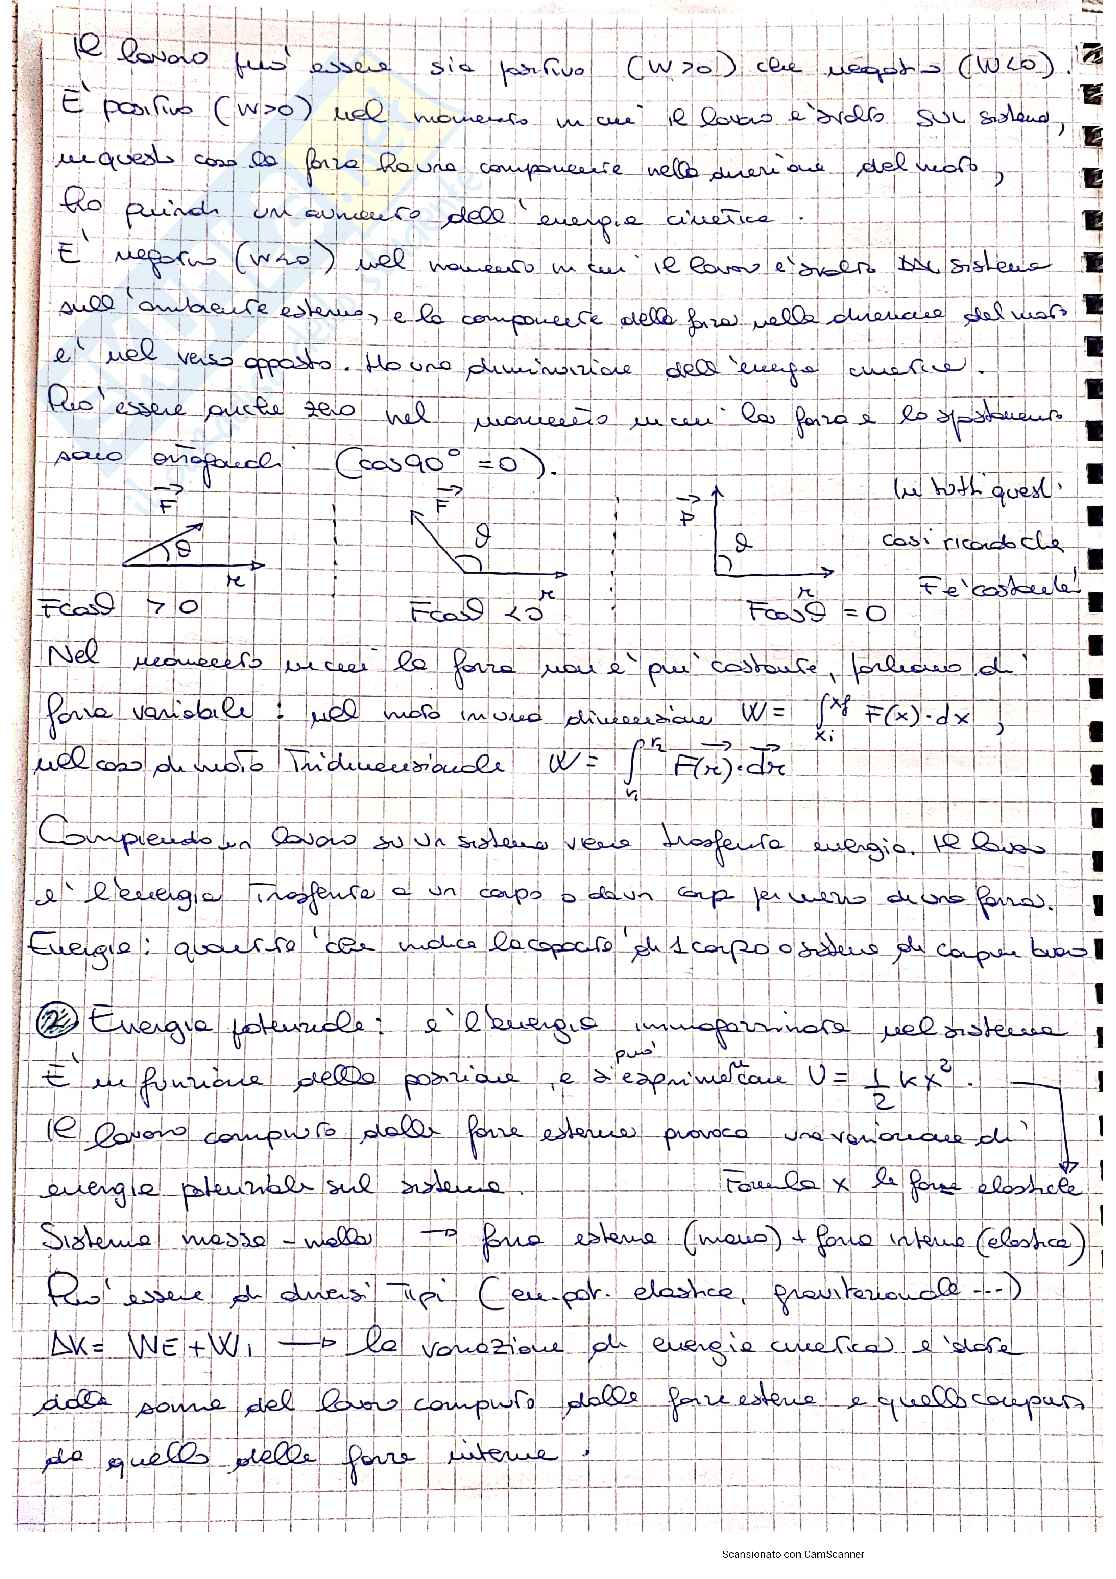 Il lavoro può essere sia positivo (W>0) che negativo (W<0).
E' positivo (W>0) nel momento in cui il lavoro è svolto SUL sistema,
in questo caso la forza ha una componente nella direzione del moto,
ho quindi un aumento dell'energia cinetica.
E' negativo (W<0) nel momento in cui il lavoro è svolto DAL sistema
sull'ambiente esterno, e la componente della forza nella direzione del moto
e' nel verso opposto. Ho una diminuzione dell'energia cinetica.
Può essere anche zero nel momento in cui la forza e lo spostamento
sono ortogonali (cos90°=0).
F F F In tutti questi
θ θ θ casi ricordo che
r r r F e' costante!
Fcosθ >0 Fcosθ <0 Fcosθ =0
Nel momento in cui la forza non è piu' costante, parliamo di
forza variabile: nel moto in una dimensione W= ∫xi xf F(x)·dx ;
nel caso di moto Tridimensionale W= ∫r1 r2 F(r)·dr
Compiendo un lavoro su un sistema viene trasferita energia. Il lavoro
e' l'energia Trasferita a un corpo o da un corpo per mezzo di una forza.
Energia: quantità che indica la capacità di 1 corpo o sistema di compiere lavoro
2 Energia potenziale: e' l'energia immagazzinata nel sistema
E' in funzione della posizione, e si può esprimere come U= 1/2 kx².
Il lavoro compiuto dalle forze esterne provoca una variazione di
energia potenziale sul sistema. Formula x le forze elastiche
Sistema massa-molla → forza esterna (mano) + forza interna (elastica)
Può essere di diversi Tipi (en.pot. elastica, gravitazionale ---)
ΔK= WE+WI → la variazione di energia cinetica e' data
dalla somma del lavoro compiuto dalle forze esterne e quello compiuto
da quello delle forze interne.
Scansionato con CamScanner